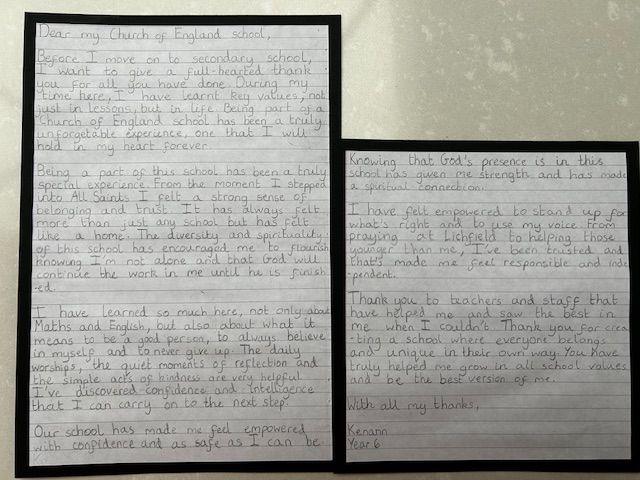 Dear my Church of England school,
Before I move on to secondary school,
I want to give a full-hearted thank
you for all you have done. During my
time here, I have learnt key values, not
just in lessons, but in life. Being part of a
Church of England school has been a truly
unforgetable experience, one that I will
hold in my heart forever.
Being a part of this school has been a truly
special experience. From the moment I stepped
into All Saints I felt a strong sense of
belonging and trust. It has always felt
more than just any school but has felt
like a home. The diversity and spirituality
of this school has encouraged me to flourish
knowing I'm not alone and that God will
continue the work in me until he is finish
-ed.
I have learned so much here, not only about
Maths and English, but also about what it
means to be a good person, to always believe
in myself and to never give up. The daily
worships, the quiet moments of reflection and
the simple acts of kindness are very helpful.
I've discovered confidence and intelligence
that I can carry on to the next step.
Our school has made me feel empowered
with confidence and as safe as I can be.
Knowing that God's presence is in this
school has given me strength and has made
a spiritual connection.
I have felt empowered to stand up for
what's right and to use my voice. From
praying at Lichfield to helping those
younger than me, I've been trusted and
that's made me feel responsible and inde
-pendent.
Thank you to teachers and staff that
have helped me and saw the best in
me when I couldn't. Thank you for crea
-ting a school where everyone belongs
and unique in their own way. You have
truly helped me grow in all school values
and be the best version of me.
With all my thanks,
Kenann
Year 6